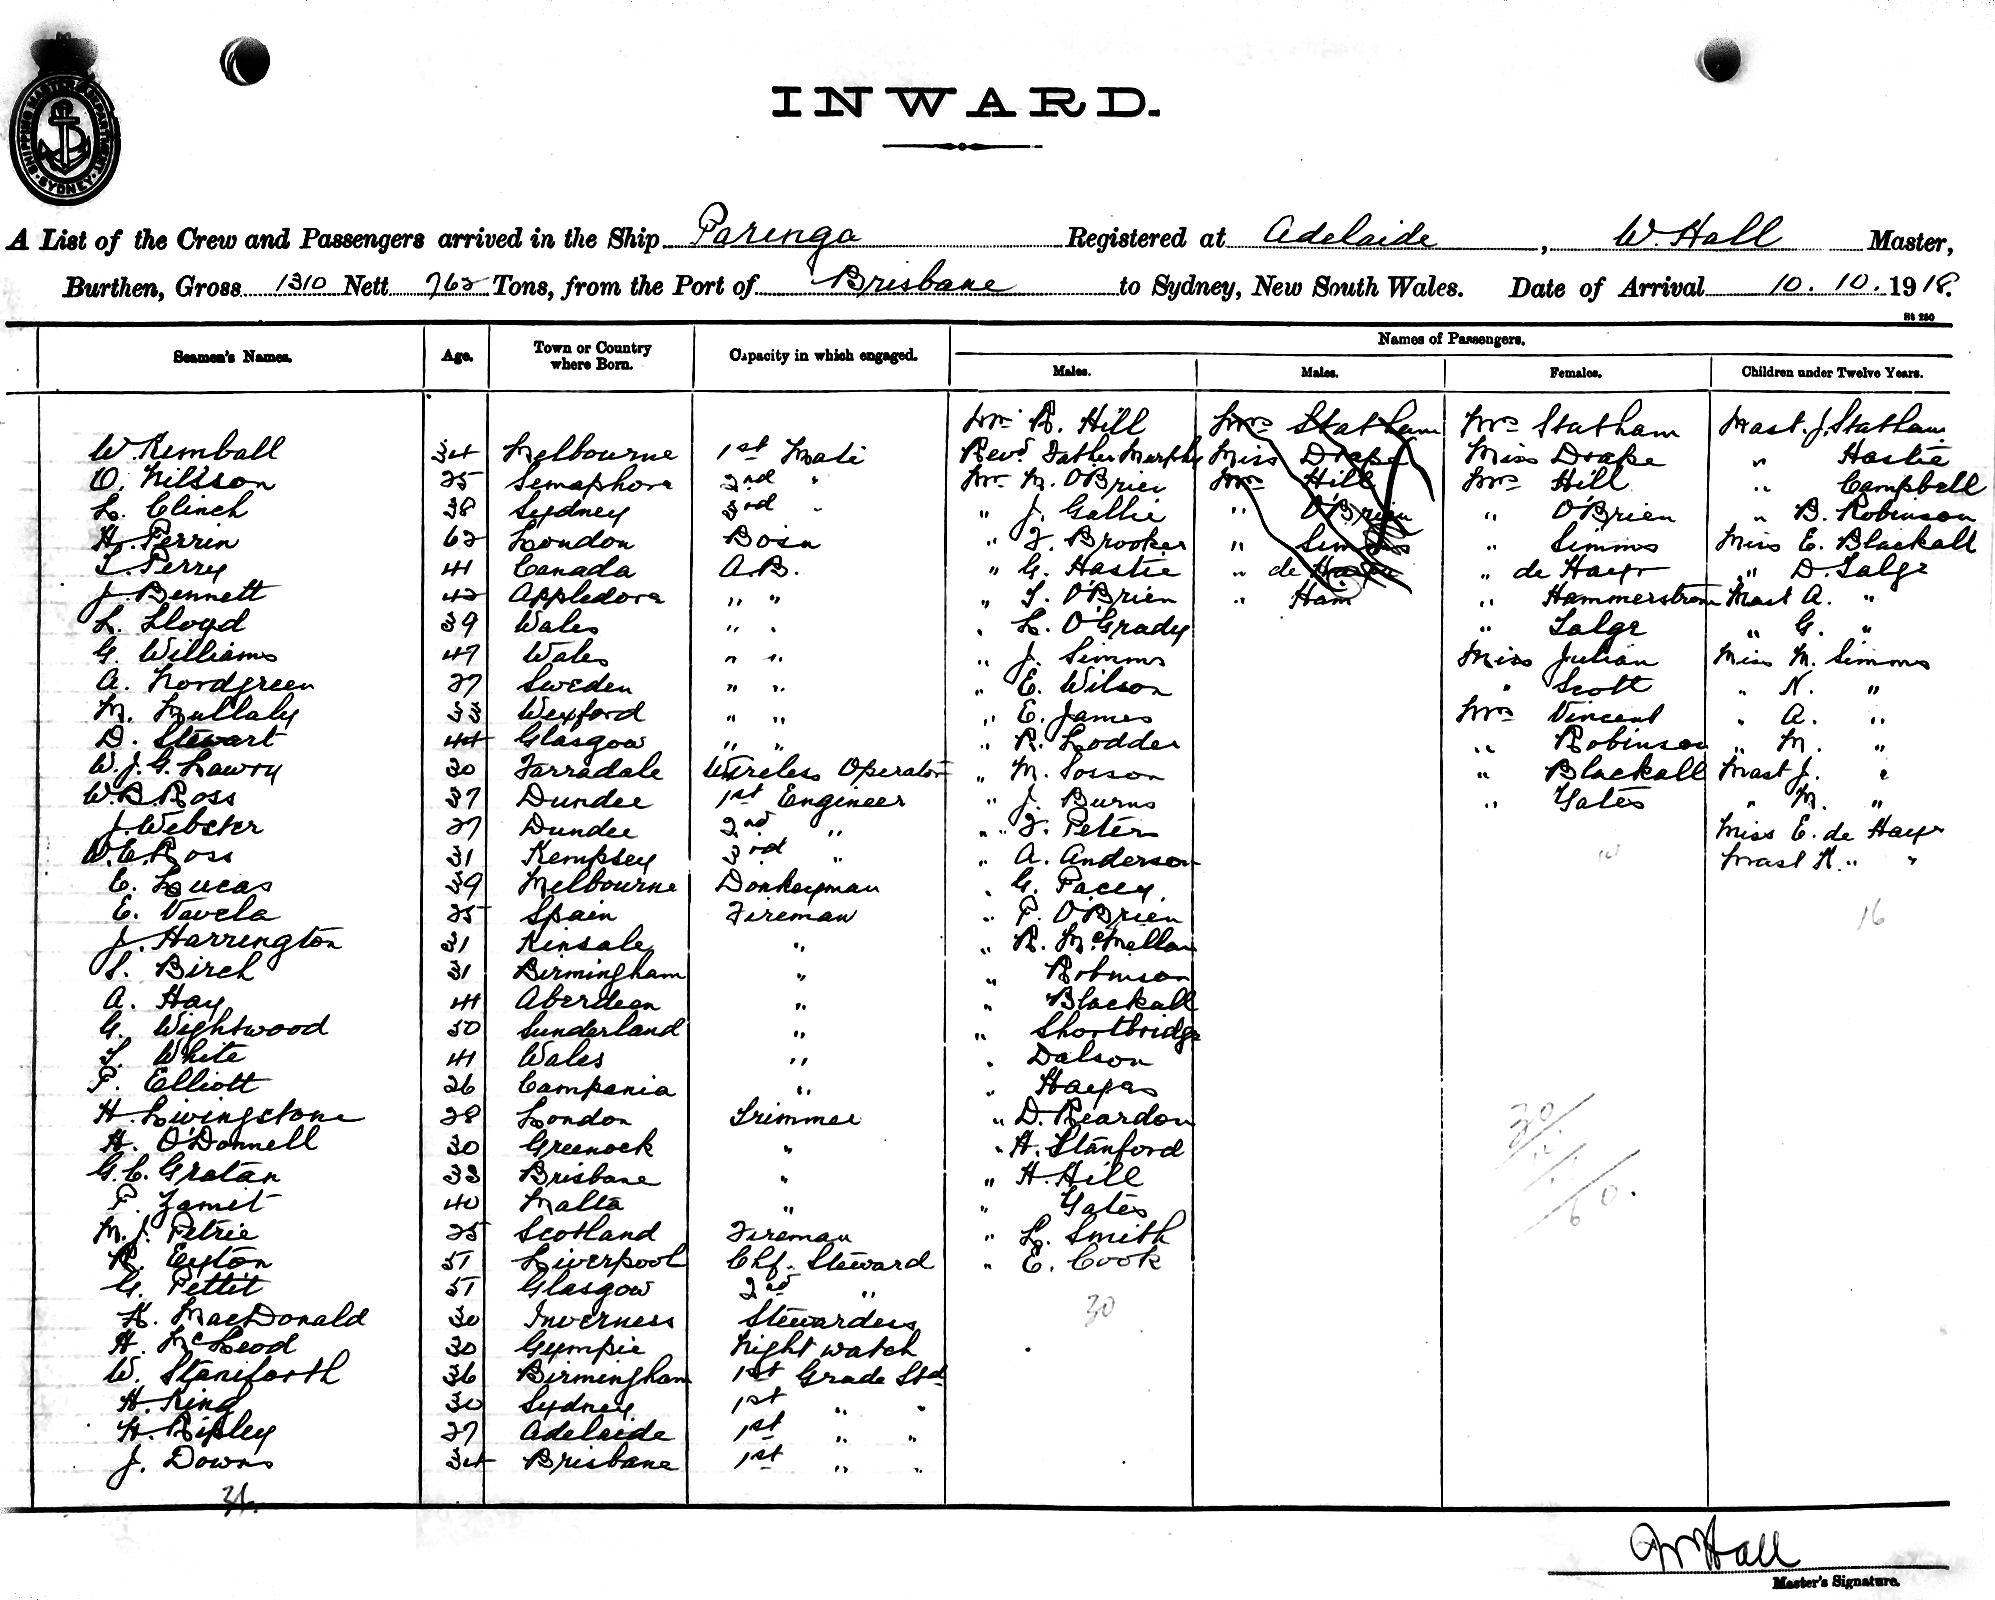 SHIPPING MASTER'S DEPARTMENT
SYDNEY
INWARD.
A List of the Crew and Passengers arrived in the Ship Paringa Registered at Adelaide, W. Hall Master,
Burthen, Gross 1310 Nett 762 Tons, from the Port of Brisbane to Sydney, New South Wales. Date of Arrival 10.10.1918.
Names of Passengers.
Seamen's Names. Age. Town or Country where Born. Capacity in which engaged. Males. Males. Females. Children under Twelve Years.
Mr R. Hill Mrs Statham Mrs Statham Mast. J. Statham
W. Kemball 34 Melbourne 1st Mate Revd. Father Murphy Miss Drape Miss Drape " Hastie
O. Nilsson 25 Semaphore 2nd " Mr M. O'Brien Mrs Hill Mrs Hill " Campbell
L. Clinch 38 Sydney 3rd " " J. Gallie " O'Brien " O'Brien " B. Robinson
H. Perrin 62 London Bosn " F. Brooker " Simms " Simms Miss E. Blackall
T. Perry 41 Canada A.B. " G. Hastie " de Hayr " de Hayr " D. Salge
J. Bennett 42 Appledore " " " T. O'Brien " Ham " Hammerstrom Mast A. "
L. Lloyd 39 Wales " " " L. O'Grady " Salge " G. "
G. Williams 47 Wales " " " J. Simms Miss Julian Miss M. Simms
A. Nordgreen 27 Sweden " " " E. Wilson " Scott " N. "
M. Mullaly 33 Wexford " " " E. James Mrs Vincent " A. "
D. Stewart 44 Glasgow " " " R. Lodder " Robinson " M. "
W.J.G. Lawry 30 Farradale Wireless Operator " M. Sosson " Blackall Mast J. "
W.B. Ross 37 Dundee 1st Engineer " J. Burns " Yates " M. "
J. Webster 27 Dundee 2nd " " F. Peters Miss E. de Hayr
W.E. Ross 31 Kempsey 3rd " " A. Anderson 14 Mast R. " "
E. Lucas 39 Melbourne Donkeyman " G. Pacey
E. Vavela 25 Spain Fireman " P. O'Brien 16
J. Harrington 31 Kinsale " " R. McMellan
S. Birch 31 Birmingham " " Robinson
A. Hay 41 Aberdeen " " Blackall
G. Wightwood 50 Sunderland " " Shortbridge
T. White 41 Wales " " Dalson
P. Elliott 26 Campania " " Hayes
H. Livingstone 28 London Trimmer " D. Reardon 30
H. O'Donnell 30 Greenock " " H. Stanford
G.C. Gratan 33 Brisbane " " H. Hill
P. Zamit 40 Malta " " Yates 60.
M.J. Petrie 25 Scotland Fireman " L. Smith
R. Eyton 51 Liverpool Chf. Steward " E. Cook
G. Pettit 51 Glasgow 2nd " 30
K. MacDonald 30 Inverness Stewardess
H. McLeod 30 Gympie Night watch
W. Staniforth 36 Birmingham 1st Grade Std
H. King 30 Sydney 1st " "
H. Ripley 27 Adelaide 1st " "
J. Downs 34 Brisbane 1st " "
W Hall
Master's Signature.